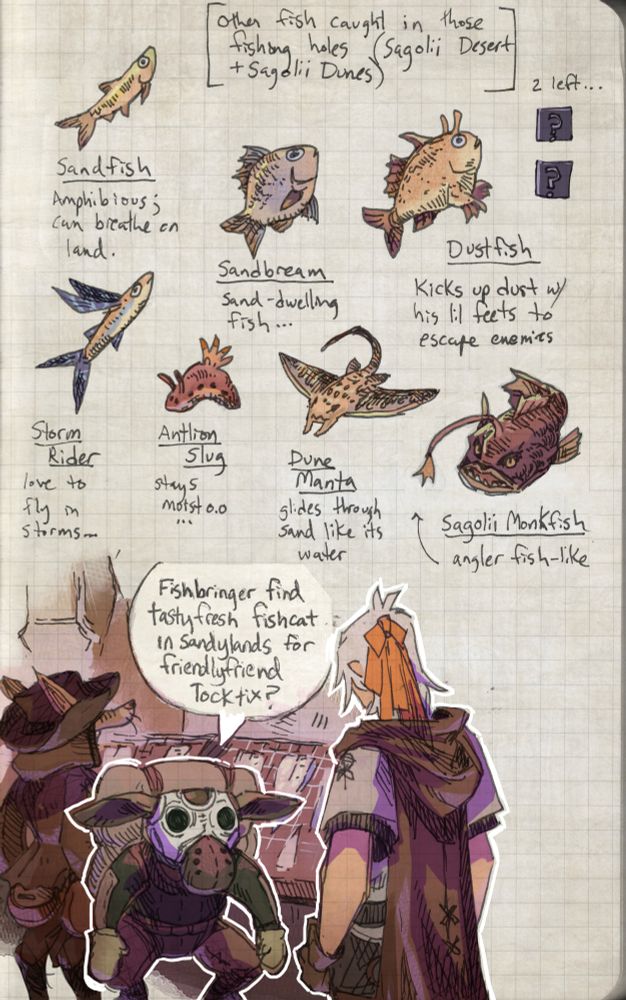 [Other fish caught in those
fishing holes (Sagolii Desert
+ Sagolii Dunes)]
2 left...
?
?
Sandfish
Amphibious;
can breathe on
land.
Sandbream
Sand-dwelling
fish...
Dustfish
Kicks up dust w/
his lil feets to
escape enemies
Storm
Rider
love to
fly in
storms...
Antlion
Slug
stays
moist o.o
...
Dune
Manta
glides through
sand like its
water
Sagolii Monkfish
angler fish-like
Fishbringer find
tastyfresh fishcat
in sandylands for
friendlyfriend
Tocktix?